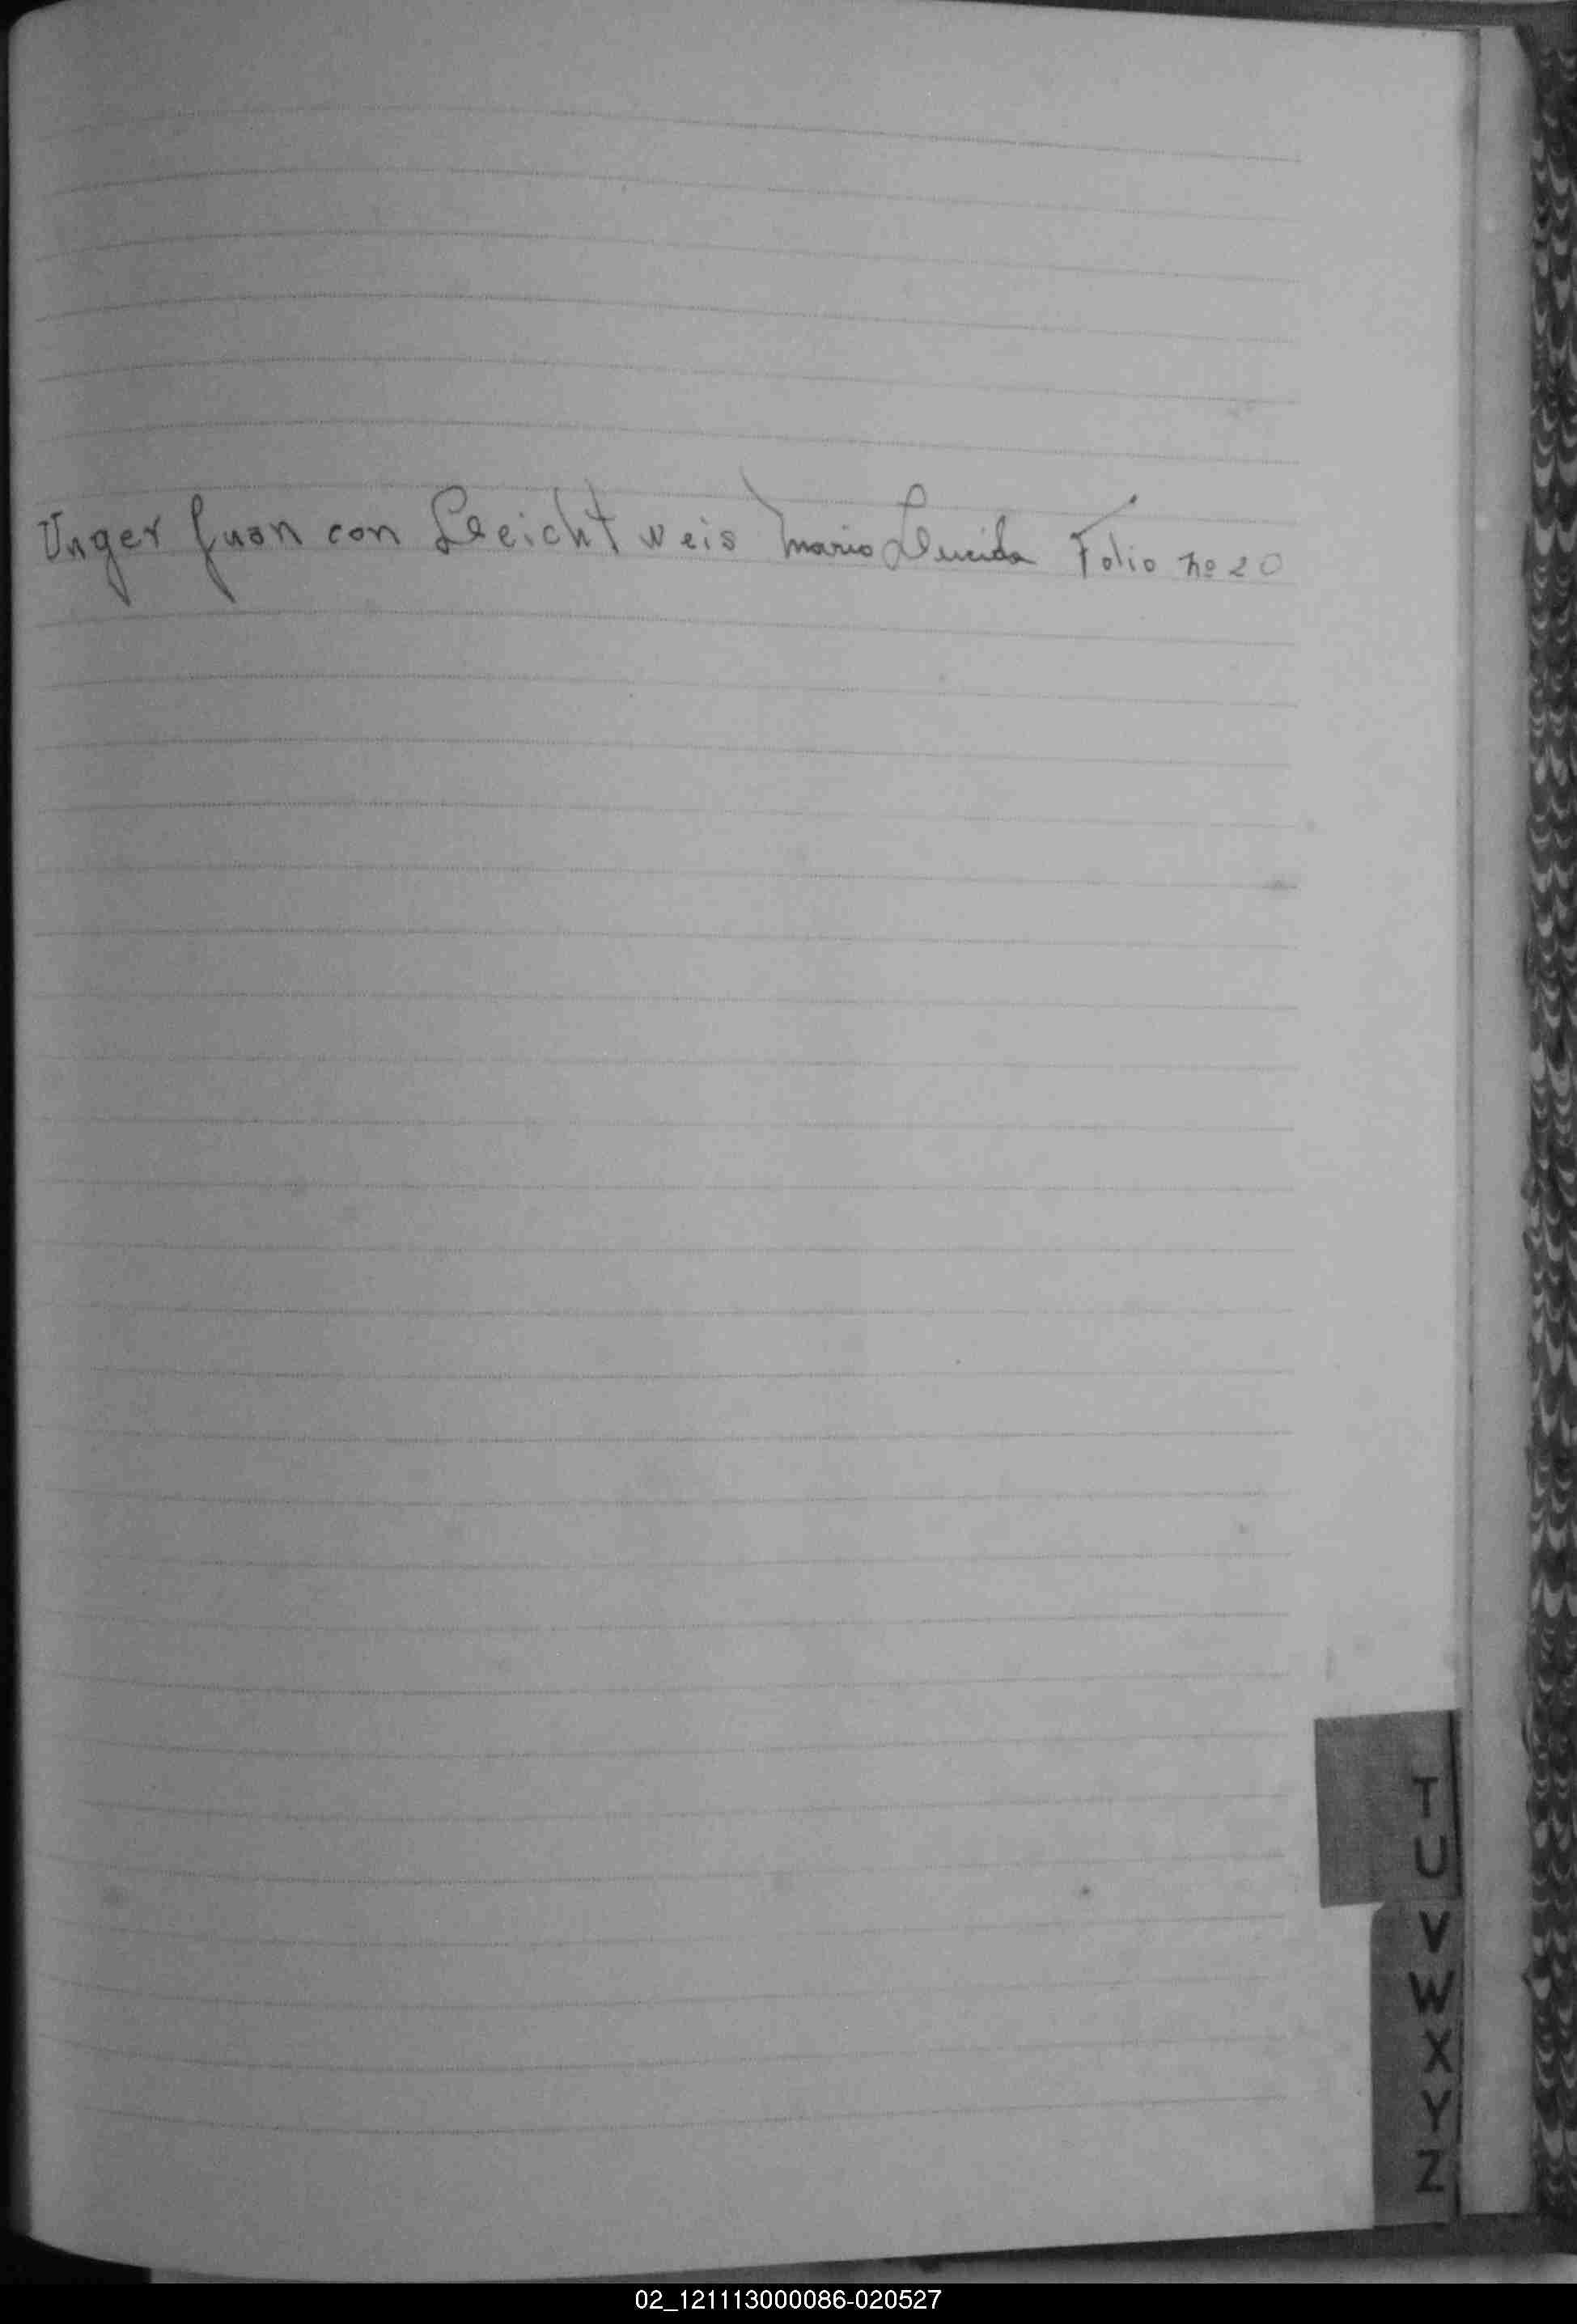 Unger Juan con Leeichtweis Mario Lucida Folio no 20
T
U
V
W
X
Y
Z
02_121113000086-020527